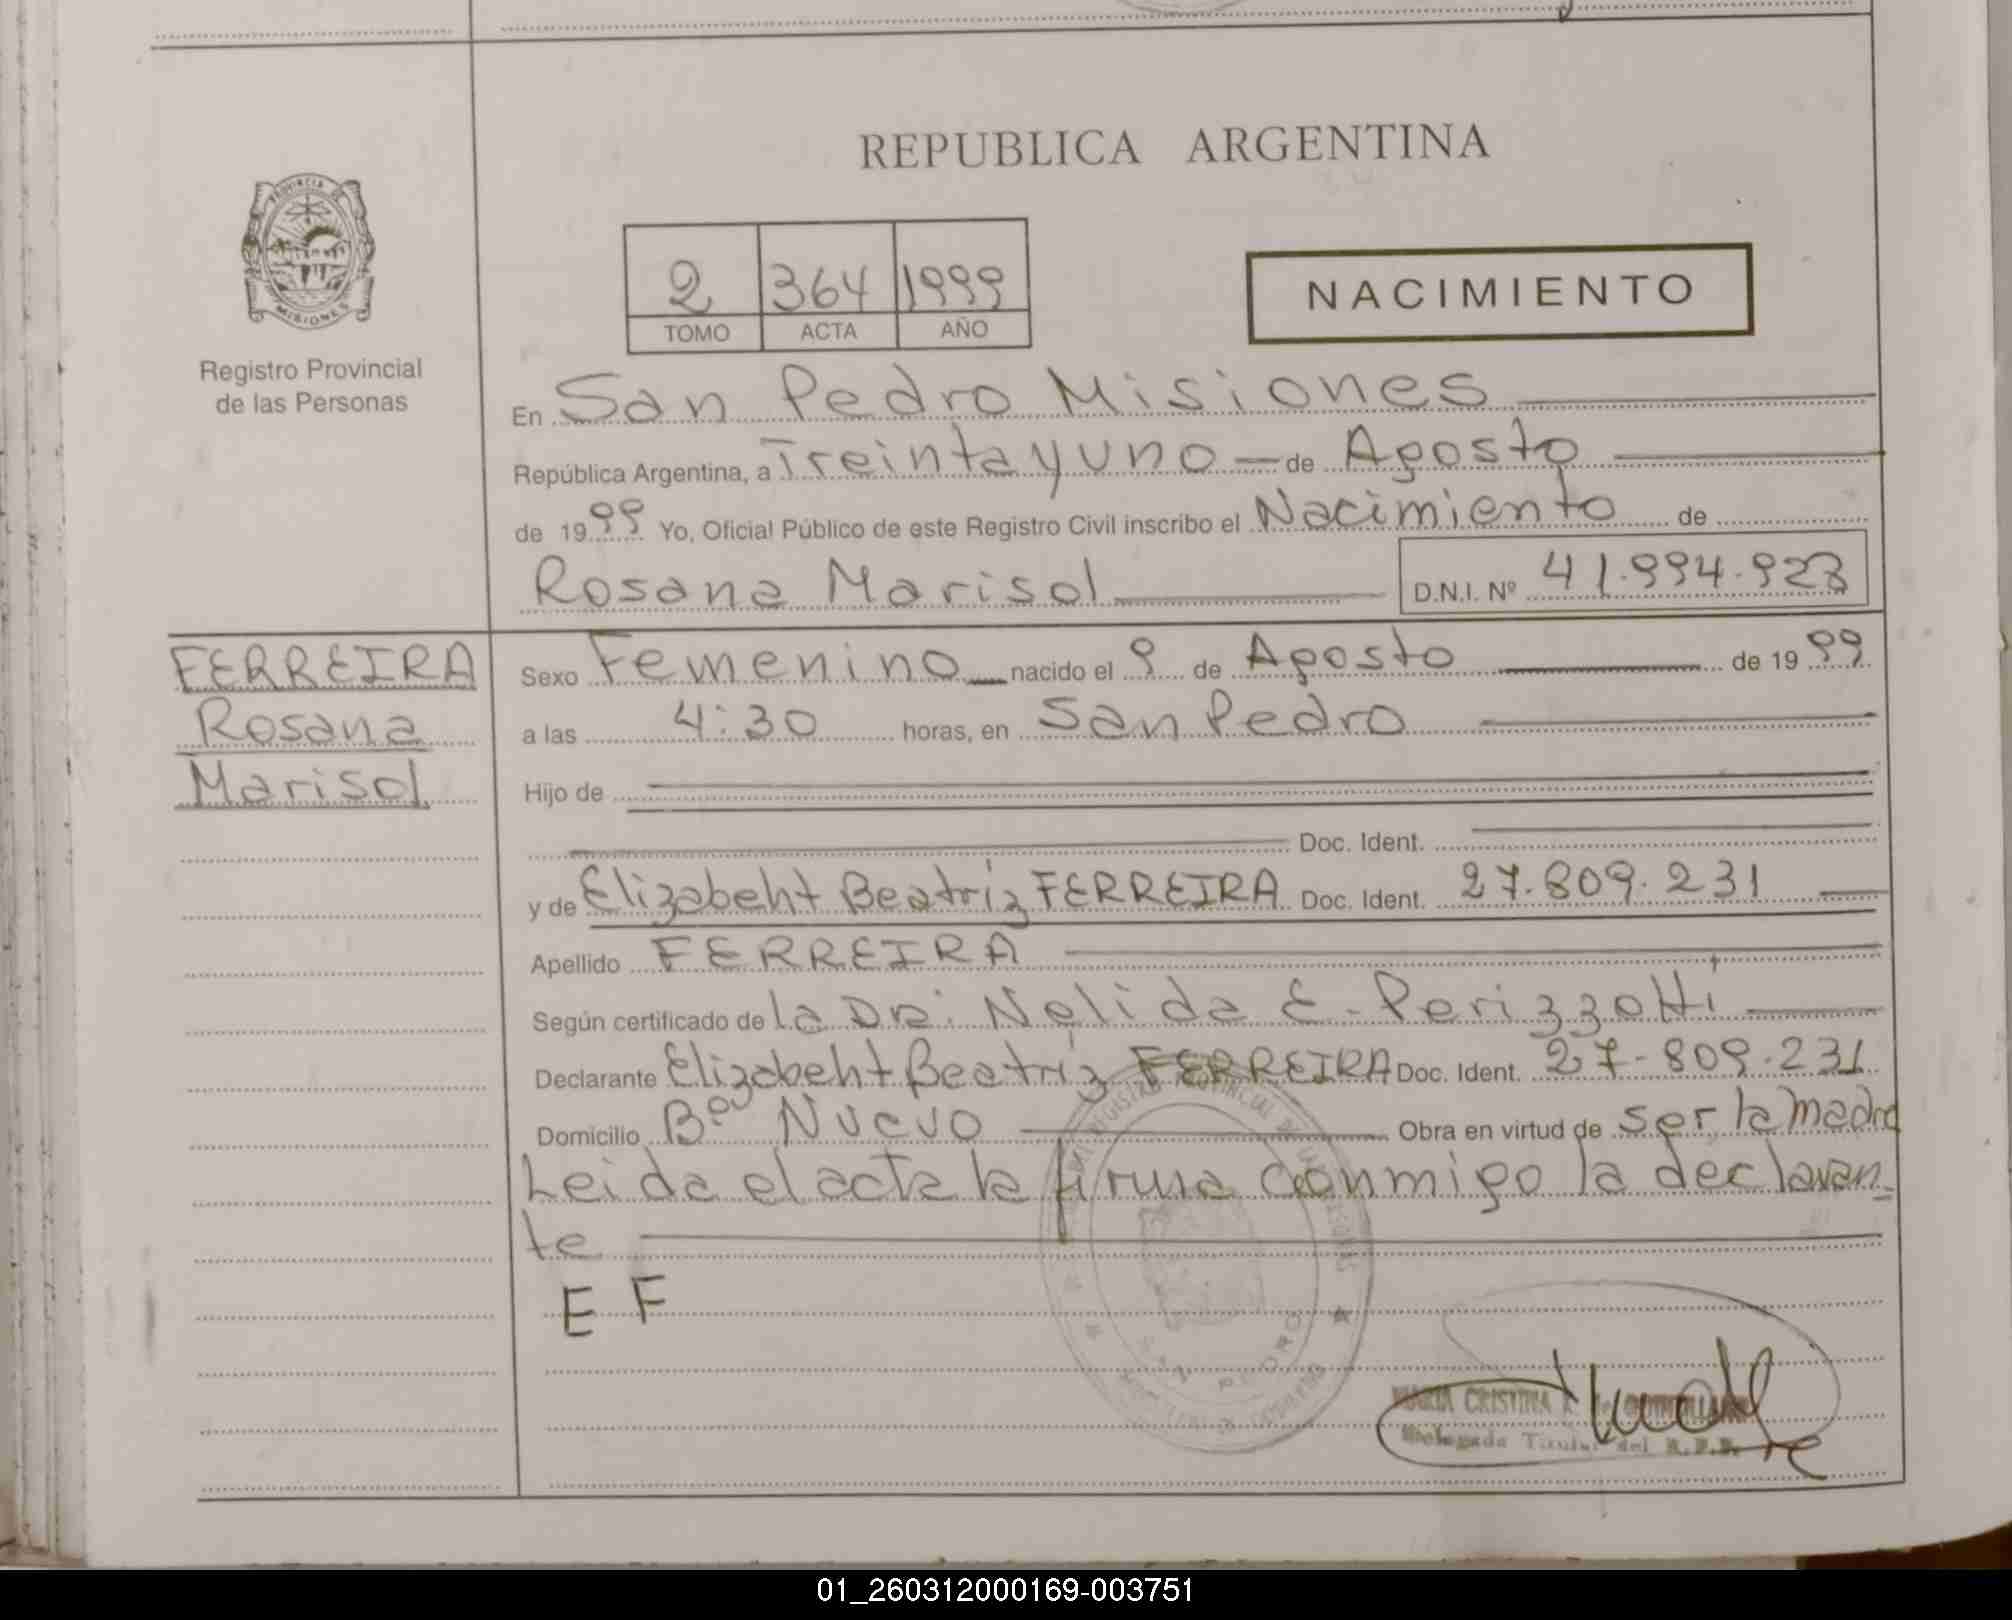 REPUBLICA ARGENTINA
PROVINCIA DE
MISIONES
Registro Provincial
de las Personas
2 364 1999
TOMO ACTA AÑO
NACIMIENTO
En San Pedro Misiones
República Argentina, a Treinta y uno de Agosto
de 1999 Yo, Oficial Público de este Registro Civil inscribo el Nacimiento de
Rosana Marisol D.N.I. Nº 41.994.923
FERREIRA
Rosana
Marisol
Sexo Femenino nacido el 9 de Agosto de 1999
a las 4:30 horas, en San Pedro
Hijo de
Doc. Ident.
y de Elizabeht Beatriz FERREIRA Doc. Ident. 27.809.231
Apellido FERREIRA
Según certificado de la Dra: Nelida E. Perizzotti
Declarante Elizabeht Beatriz FERREIRA Doc. Ident. 27-809.231
Domicilio Bº Nuevo Obra en virtud de ser la madre
Leida el acta la firma conmigo la declaran-
te
E F
MARIA CRISTINA
Delegada Titular del R.P.P.
01_260312000169-003751